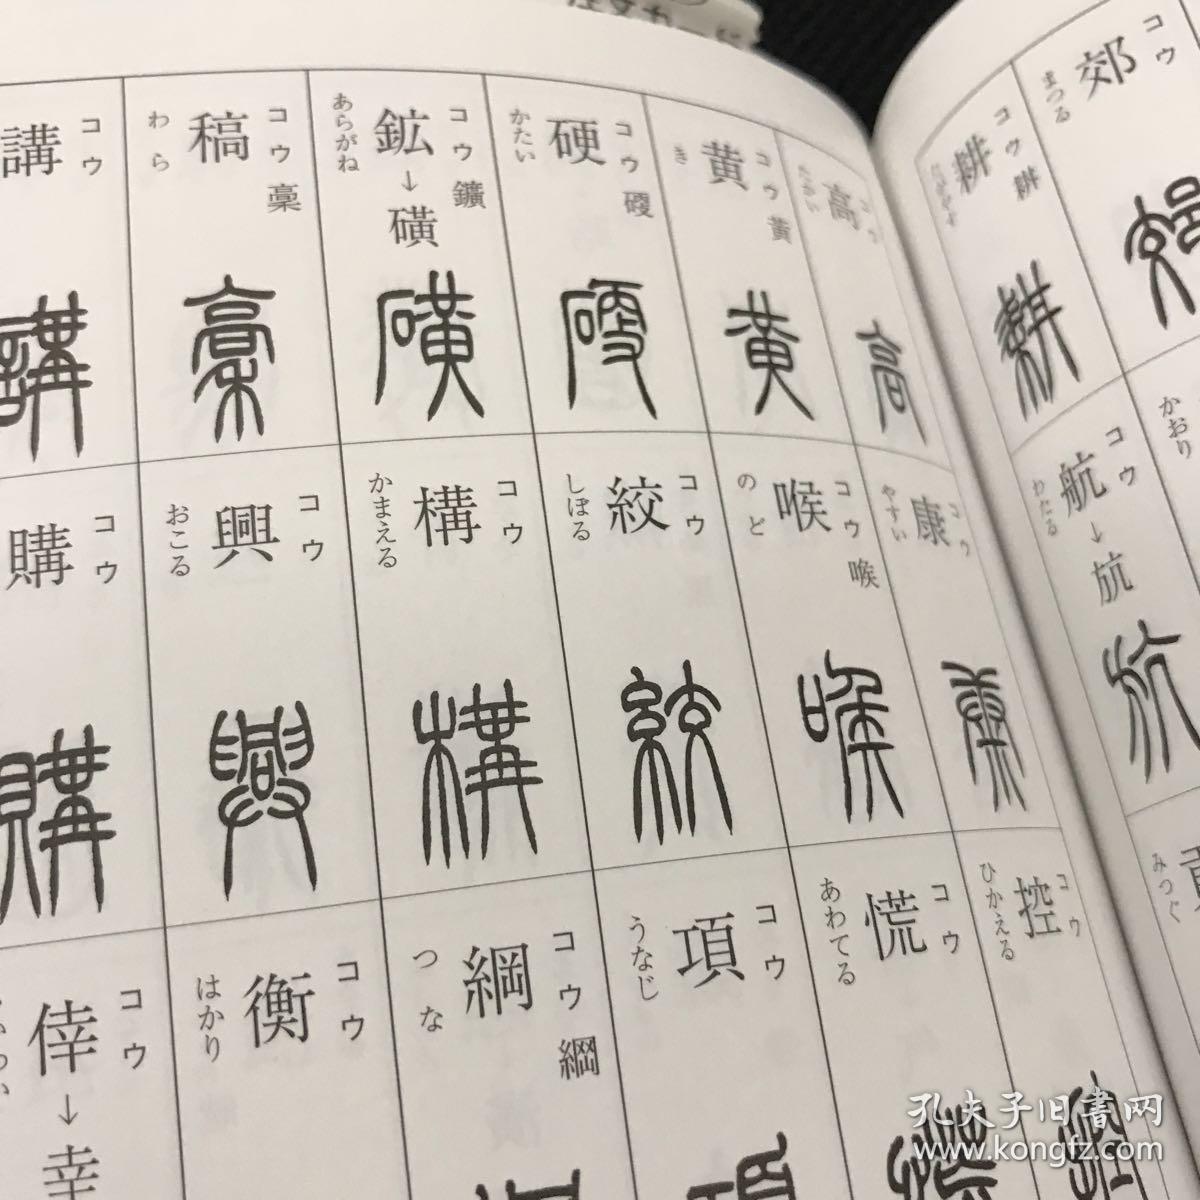 郊 コウ まつる
耕 コウ 畊 たがやす
高 コウ たかい
黄 コウ 黃 き
硬 コウ かたい
鉱 コウ 鑛 あらがね
→ 磺
稿 コウ 稾 わら
講 コウ
かおり
航 コウ わたる
→ 㐬
康 コウ やすい
喉 コウ のど
絞 コウ しぼる
構 コウ かまえる
興 コウ おこる
購 コウ
みつぐ
控 コウ ひかえる
慌 コウ あわてる
項 コウ うなじ
綱 コウ 綱 つな
衡 コウ はかり
倖 コウ
→ 幸
孔夫子旧書网
www.kongfz.com